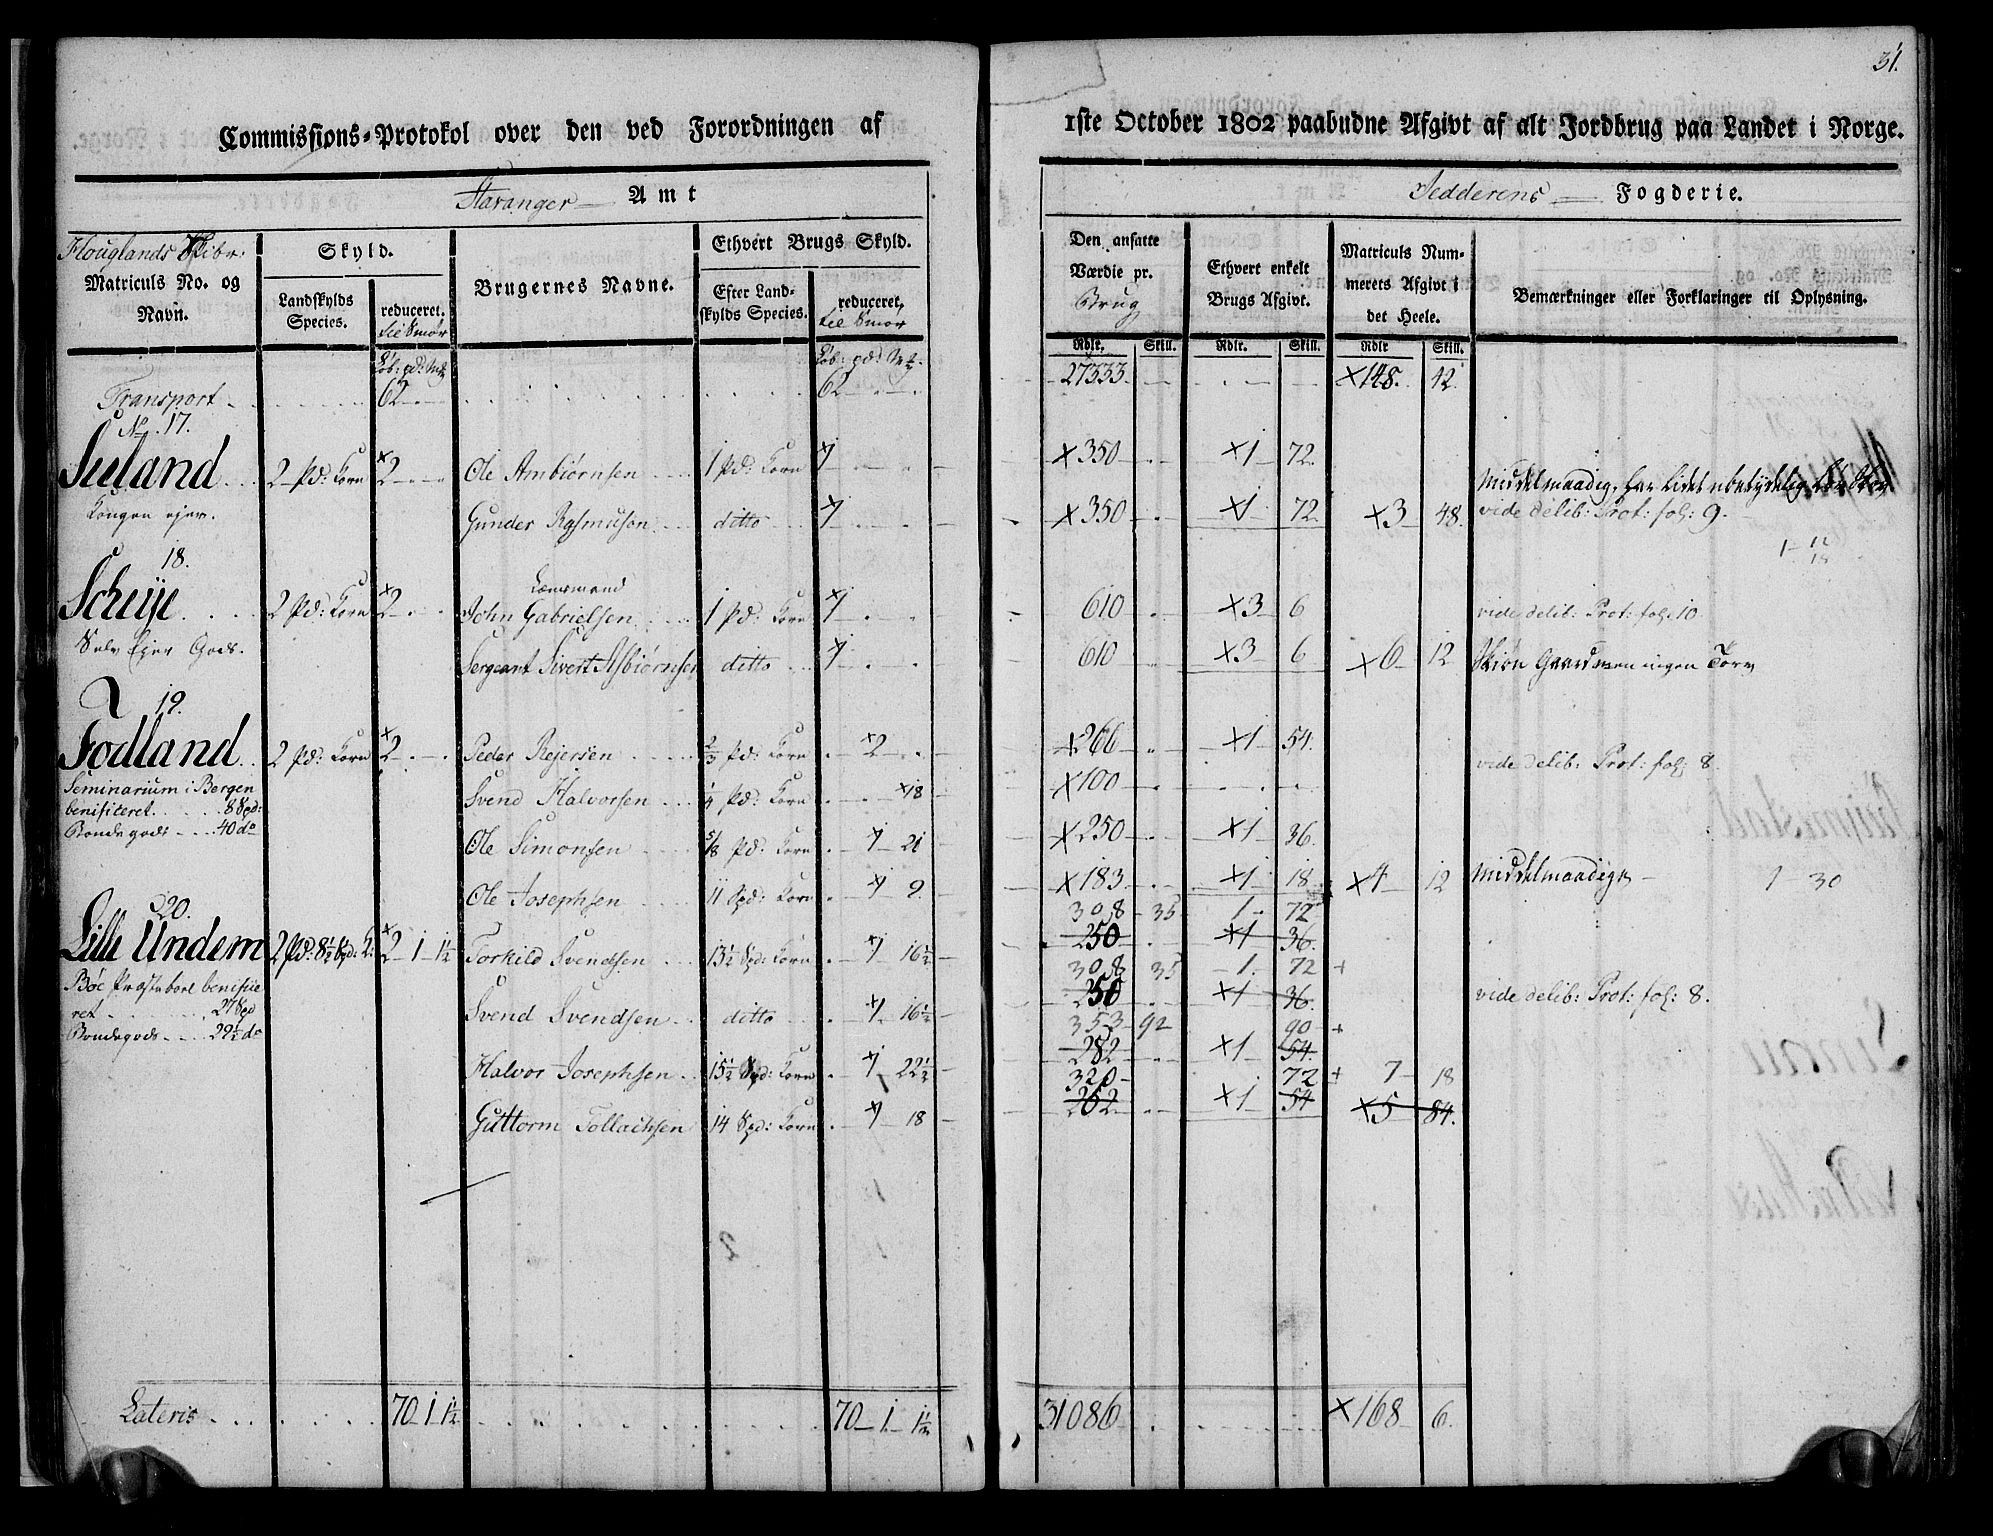 31.
Commissions-Protokol over den ved Forordningen af
1ste October 1802 paabudne Afgivt af alt Jordbrug paa Landet i Norge.
Stavanger Amt
Jedderens Fogderie.
Houglands Skibr:
Matriculs No. og Navn.
Skyld.
Landskylds Species.
reduceret. til Smør
Brugernes Navne.
Ethvert Brugs Skyld.
Efter Landskylds Species.
reduceret, til Smør
Den ansatte Værdie pr. Brug
Ethvert enkelt Brugs Afgivt.
Matriculs Nummerets Afgivt i det Heele.
Bemærkninger eller Forklaringer til Oplysning.
Rdlr. Skill. Rdlr. Skill. Rdlr Skill.
Transport 62 62 27333 ×148. 42
No. 17.
Seeland 2 Pd: Korn ×2 Ole Ambiørnsen 1 Pd: Korn ×1 ×350 ×1 72.
Kongen ejer. Gunder Rasmusen ditto ×1 ×350 ×1 72 ×3 48. vide delib: Prot: fol: 9.
18.
Lænsmand
Scheije 2 Pd: Korn ×2 John Gabrielsen 1 Pd: Korn ×1 610 ×3 6 vide delib: Prot: fol: 10
Selv Ejer Gods. Sergeant Sivert Asbiørnsen ditto ×1 610 ×3 6 ×6 12 Skiøn Gaard men ingen Torv
19.
Fodland 2 Pd: Korn ×2 Peder Rejersen 2/3 Pd: Korn ×2 ×266 ×1 54. vide delib: Prot: fol: 8.
Seminarium i Bergen
benificeret 8 Spd: Svend Halvorsen 1/4 Pd: Korn ×18 ×100
Bondegods 40 do Ole Simonsen 5/8 Pd: Korn ×1 21 ×250 ×1 36.
Ole Josephsen 11 Spd: Korn ×1 9. ×183 ×1 18 ×4 12 Middelmaadige 1 30
20.
308 35 1 72
Lille Undem 2 Pd: 8 1/2 Spd: K: ×2 1 1 1/2 Torkild Svendsen 13 1/2 Spd: Korn ×1 16 1/2 250 ×1 36.
308 35 1. 72 +
Bøe Præstebord benificeret 27 Spd Svend Svendsen ditto ×1 16 1/2 250 ×1 36. vide delib: Prot: fol: 8.
353 92 90 +
Bondegods 29 1/2 do Halvor Josephsen 15 1/2 Spd: Korn ×1 22 1/2 282 ×1 54.
320 72 + 7 18
Guttorm Tollachsen 14 Spd: Korn ×1 18 262 ×1 54 ×5 84.
Lateris 70 1 1 1/2 70 1 1 1/2 31086 ×168 6.